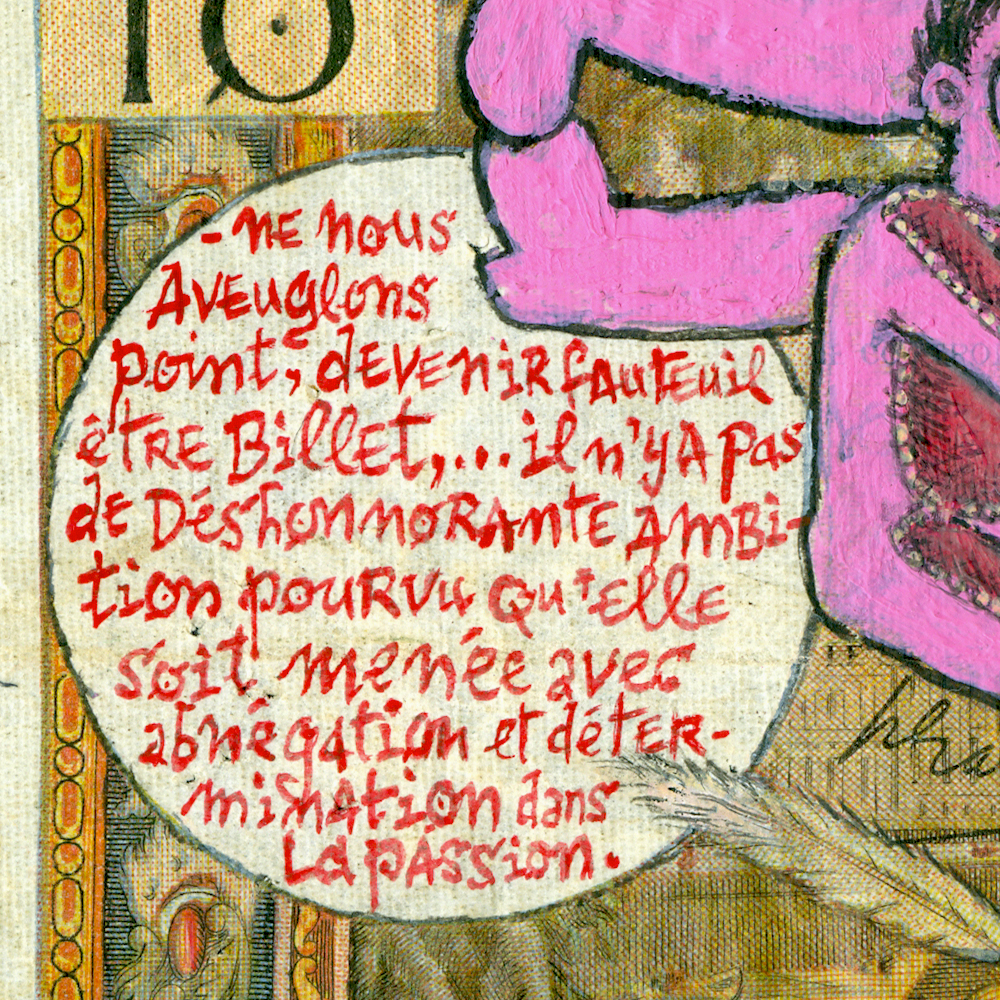 10
- NE NOUS
AVEUGLONS
point, dEVENIR fAUTEUIL
êTRE BillET,... il n'y A pas
de DéshonnoRANTE AMBI-
tion pouRVu Qu'Elle
soit menée avec
abnégation et déTER-
mination dans
La pAssion.